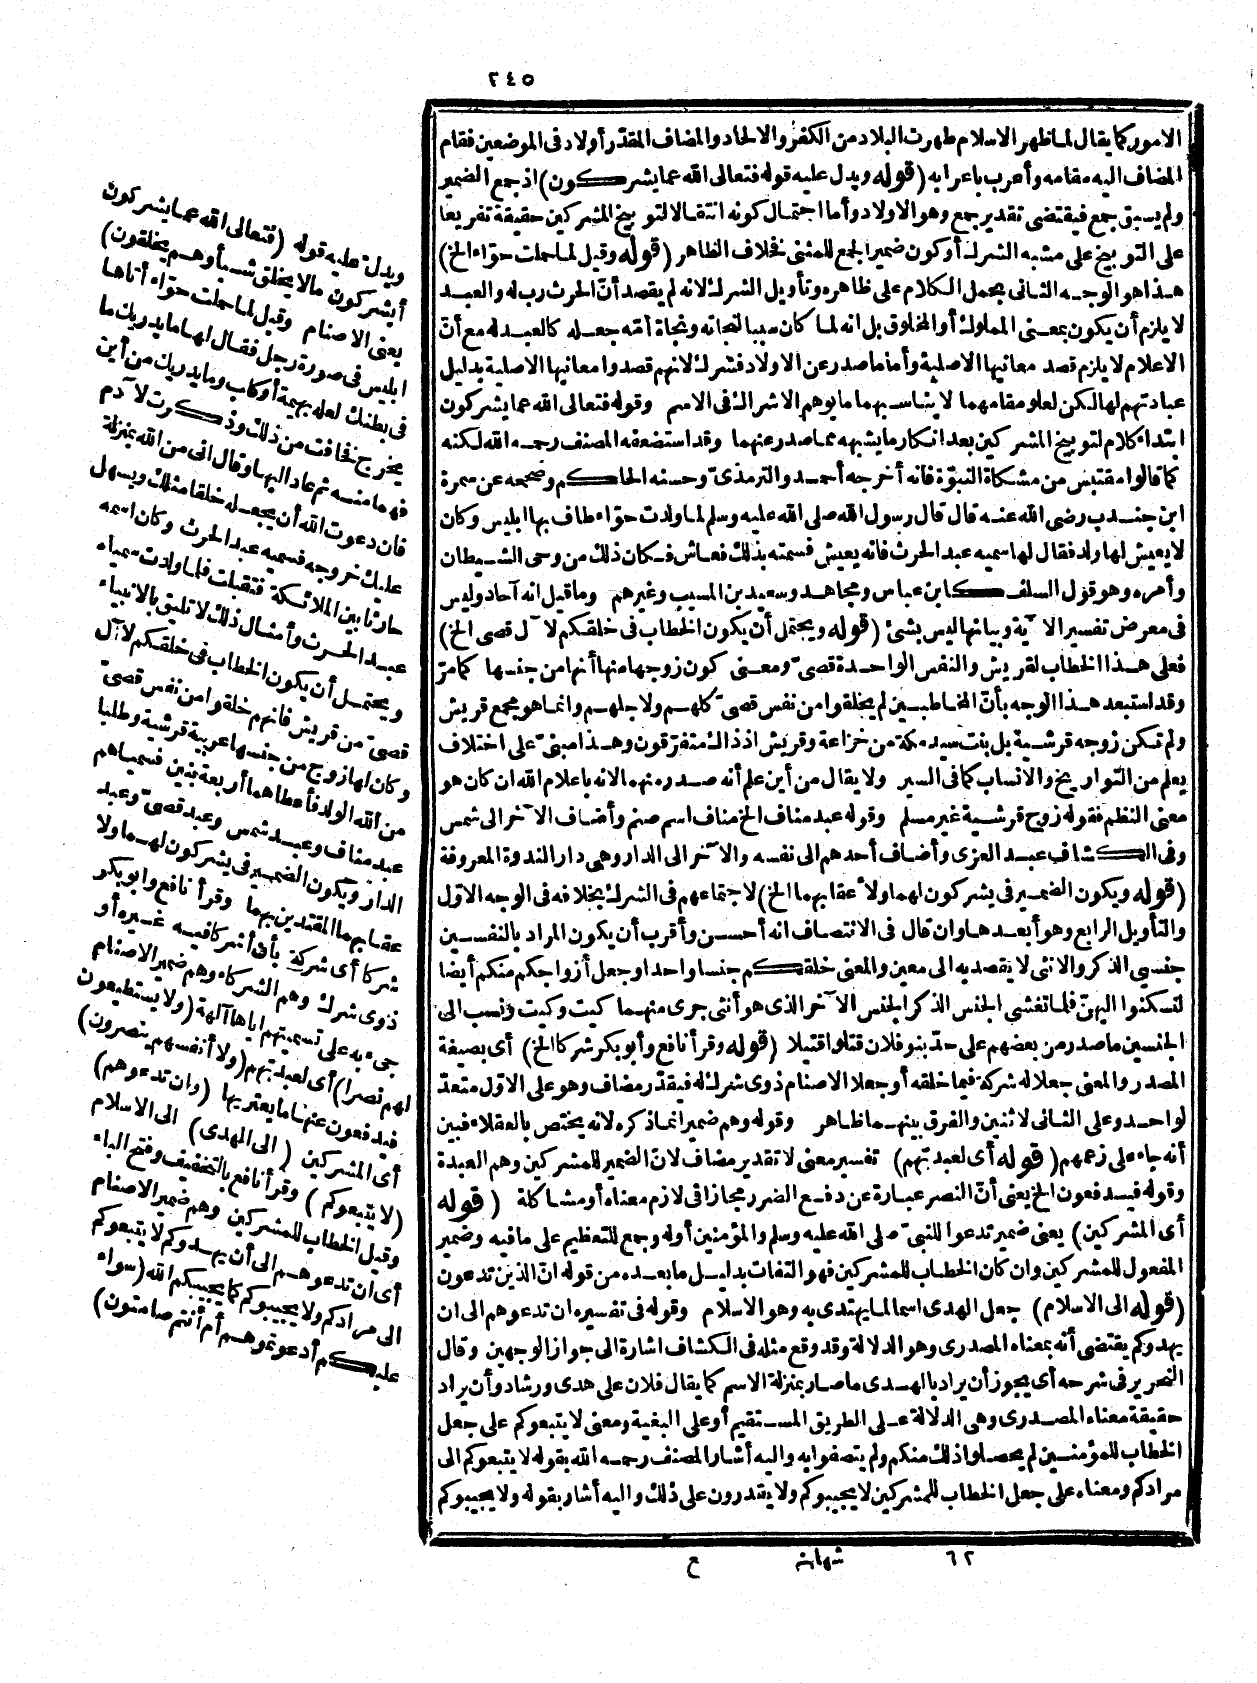 ٢٤٥
الامور كما يقال لما ظهر الاسلام طهرت البلاد من الكفر والالحاد والمضاف المقدّر أولاد فى الموضعين فقام
المضاف اليه مقامه وأعرب باعرابه (قوله ويدل عليه قوله فتعالى الله عما يشركون) اذ جمع الضمير
ولم يسبق جمع فيقتضى تقدير جمع وهو الاولاد وأما احتمال كونه انتقالا لتوبيخ المشركين حقيقة تفريعا
على التوبيخ على مشبه الشرك أو كون ضمير الجمع للمثنى فخلاف الظاهر (قوله وقيل لما حملت حوّاء الخ)
هذا هو الوجه الثانى يحمل الكلام على ظاهره وتأويل الشرك لانه لم يقصد أنّ الحرث رب له والعبد
لا يلزم أن يكون بمعنى المملوك أو المخلوق بل انه لما كان سببا لنجاته ونجاة أمّه جعله كالعبد له مع أنّ
الاعلام لا يلزم قصد معانيها الاصلية وأما ما صدر عن الاولاد فشرك لانهم قصدوا معانيها الاصلية بدليل
عبادتهم لها لكن لعلو مقامهما لا يناسبهما ما يوهم الاشراك فى الاسم وقوله فتعالى الله عما يشركون
ابتداء كلام لتوبيخ المشركين بعد انكار ما يشبهه مما صدر عنهما وقد استضعفه المصنف رحمه الله لكنه
كما قالوا مقتبس من مشكاة النبوّة فانه أخرجه أحمد والترمذىّ وحسنه الحاكم وصححه عن سمرة
ابن جندب رضى الله عنه قال قال رسول الله صلى الله عليه وسلم لما ولدت حوّاء طاف بها ابليس وكان
لا يعيش لها ولد فقال لها سميه عبد الحرث فانه يعيش فسمته بذلك فعاش فكان ذلك من وحى الشيطان
وأمره وهو قول السلف كابن عباس ومجاهد وسعيد بن المسيب وغيرهم وما قيل انه آحاد وليس
فى معرض تفسير الآية وبيانها ليس بشئ (قوله ويحتمل أن يكون الخطاب فى خلقكم لآل قصى الخ)
فعلى هذا الخطاب لقريش والنفس الواحدة قصىّ ومعنى كون زوجها منها أنها من جنسها كما مرّ
وقد استبعد هذا الوجه بأنّ المخاطبين لم يخلقوا من نفس قصىّ كلهم ولا جلهم وانما هو مجمع قريش
ولم تكن زوجه قرشية بل بنت سيد مكة من خزاعة وقريش اذ ذاك متفرّقون وهذا مبنىّ على اختلاف
يعلم من التواريخ والانساب كما فى السير ولا يقال من أين علم أنه صدر منهم الا بأعلام الله ان كان هو
معنى النظم فقوله زوج قرشية غير مسلم وقوله عبد مناف الخ مناف اسم صنم وأضاف الآخر الى شمس
وفى الكشاف عبد العزى وأضاف أحدهم الى نفسه والآخر الى الدار وهى دار الندوة المعروفة
(قوله ويكون الضمير فى يشركون لهما ولأعقابهما الخ) لاجتماعهم فى الشرك بخلافه فى الوجه الاوّل
والتأويل الرابع وهو أبعدها وان قال فى الانتصاف انه أحسن وأقرب أن يكون المراد بالنفسين
جنسى الذكر والانثى لا يقصد به الى معين والمعنى خلقكم جنسا واحدا وجعل أزواجكم منكم أيضا
لتسكنوا اليهنّ فلما تغشى الجنس الذكر الجنس الآخر الذى هو أنثى جرى منهما كيت وكيت ونسب الى
الجنسين ما صدر من بعضهم على حدّ بنو فلان قتلوا قتيلا (قوله وقرأ نافع وأبو بكر شركا الخ) أى بصيغة
المصدر والمعنى جعلا له شركة فيما خلقه أو جعلا الاصنام ذوى شرك له فيقدّر مضاف وهو على الاوّل متعدّ
لواحد وعلى الثانى لاثنين والفرق بينهما ظاهر وقوله وهم ضمير انما ذكره لانه يختص بالعقلاء فبين
أنه جاء على زعمهم (قوله أى لعبدتهم) تفسير معنى لا تقدير مضاف لانّ الضمير للمشركين وهم العبدة
وقوله فيدفعون الخ يعنى أنّ النصر عبارة عن دفع الضرر مجازا فى لازم معناه أو مشاكلة (قوله
أى المشركين) يعنى ضمير تدعوا للنبىّ صلى الله عليه وسلم والمؤمنين أوله وجمع للتعظيم على ما فيه وضمير
المفعول للمشركين وان كان الخطاب للمشركين فهو التفات بدليل ما بعده من قوله انّ الذين تدعون
(قوله الى الاسلام) جعل الهدى اسما لما يهتدى به وهو الاسلام وقوله فى تفسيره ان تدعوهم الى ان
يهدوكم يقتضى أنه بمعناه المصدرى وهو الدلالة وقد وقع مثله فى الكشاف اشارة الى جواز الوجهين وقال
النحرير فى شرحه أى يجوز أن يراد بالهدى ما صار بمنزلة الاسم كما يقال فلان على هدى ورشاد وأن يراد
حقيقة معناه المصدرى وهى الدلالة على الطريق المستقيم أو على البغية ومعنى لا يتبعوكم على جعل
الخطاب للمؤمنين لم يحصلوا ذلك منكم ولم يتصفوا به واليه أشار المصنف رحمه الله بقوله لا يتبعوكم الى
مرادكم ومعناه على جعل الخطاب للمشركين لا يجيبوكم ولا يقدرون على ذلك واليه أشار بقوله ولا يجيبوكم
ويدل عليه قوله (فتعالى الله عما يشركون
أيشركون مالا يخلق شيأ وهم يخلقون)
يعنى الاصنام وقيل لما حملت حوّاء أتاها
ابليس فى صورة رجل فقال لها ما يدريك ما
فى بطنك لعله بهيمة أو كلب وما يدريك من أين
يخرج فخافت من ذلك وذكرت لآدم
فهما منه ثم عاد اليها وقال انى من الله بمنزلة
فان دعوت الله أن يجعله خلقا مثلك ويسهل
عليك خروجه فسميه عبد الحرث وكان اسمه
حارثا بين الملائكة فتقبلت فلما ولدت سمياه
عبد الحرث وأمثال ذلك لا تليق بالانبياء
ويحتمل أن يكون الخطاب فى خلقكم لآل
قصىّ من قريش فانهم خلقوا من نفس قصىّ
وكان لها زوج من جنسها عربية قرشية وطلبا
من الله الولد فأعطاهما أربعة بنين فسمياهم
عبد مناف وعبد شمس وعبد قصىّ وعبد
الدار ويكون الضمير فى يشركون لهما ولا
عقابهما المقتدين بهما وقرأ نافع وابو بكر
شركا أى شركة بأن أشركا فيه غيره أو
ذوى شرك وهم الشركاء وهم ضمير الاصنام
جىء به على تسميتهم اياها آلهة (ولا يستطيعون
لهم نصرا) أى لعبدتهم (ولا أنفسهم ينصرون)
فيدفعون عنها ما يعتريها (وان تدعوهم)
أى المشركين (الى الهدى) الى الاسلام
(لا يتبعوكم) وقرأ نافع بالتخفيف وفتح الباء
وقيل الخطاب للمشركين وهم ضمير الاصنام
أى ان تدعوهم الى أن يهدوكم لا يتبعوكم
الى مرادكم ولا يجيبوكم كما يجيبكم الله (سواء
عليكم أدعوتموهم أم أنتم صامتون)
٦٢ شهاب ع